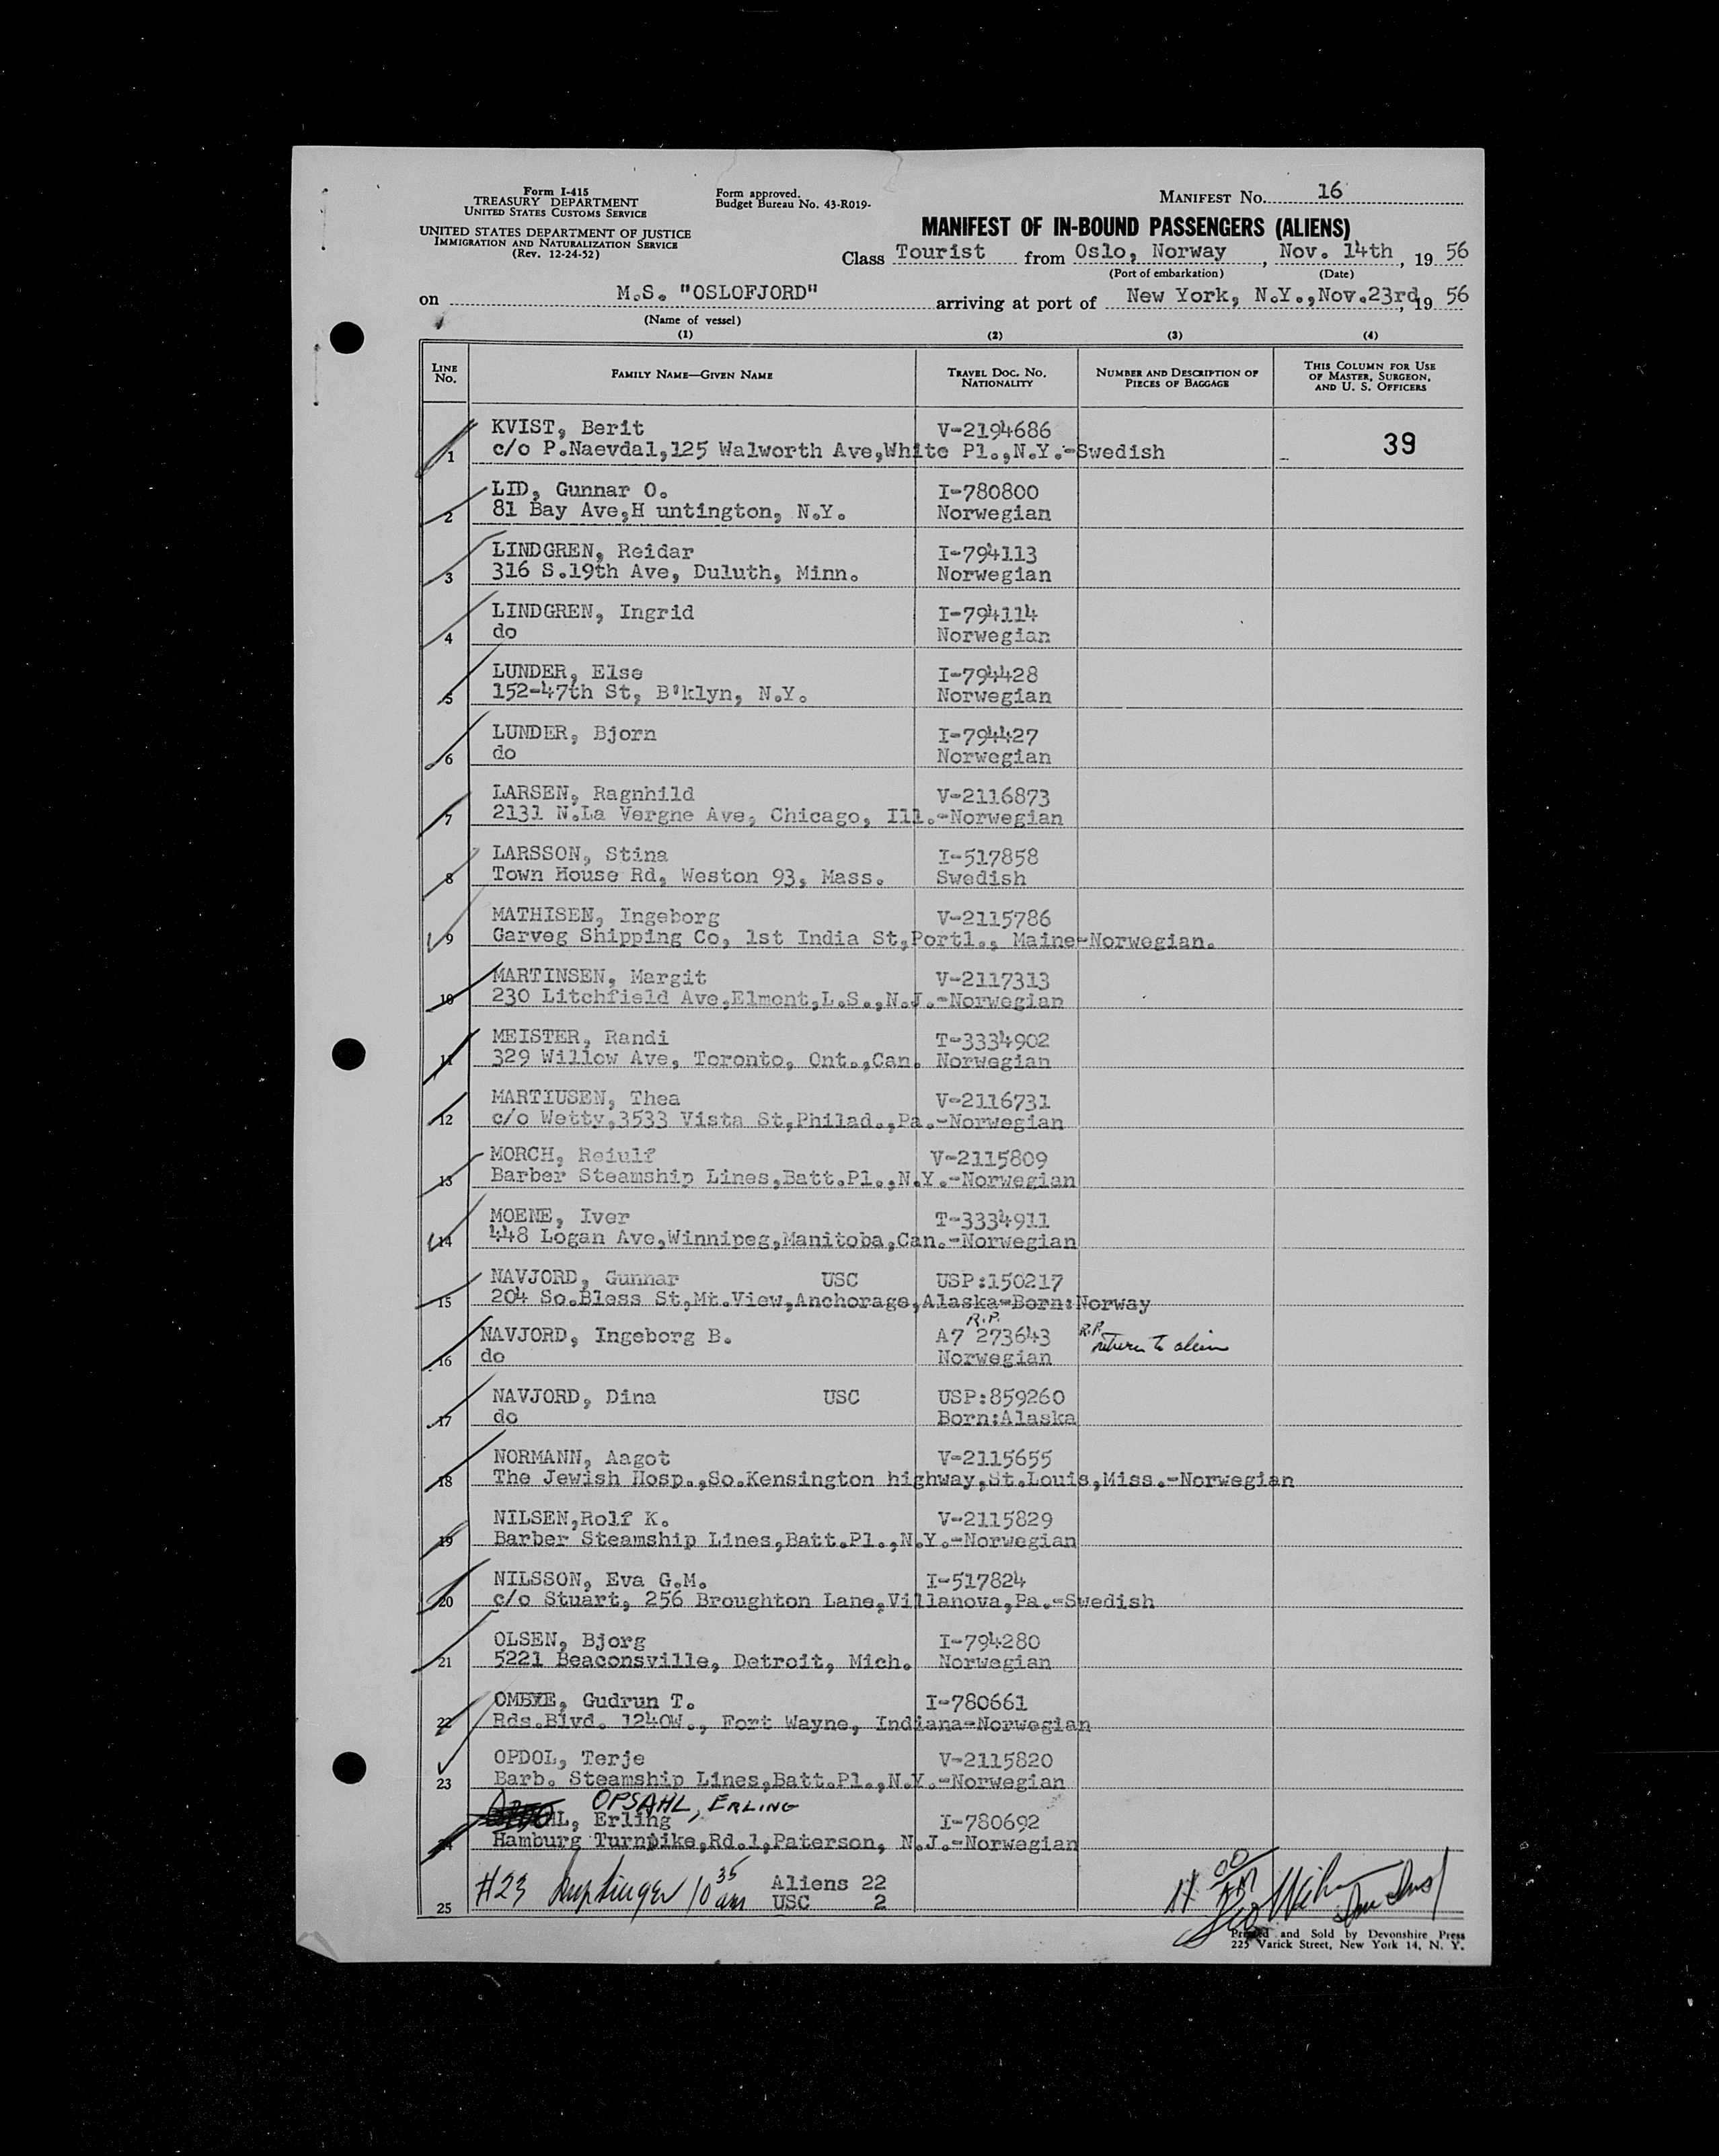 Form I-415
TREASURY DEPARTMENT
UNITED STATES CUSTOMS SERVICE
UNITED STATES DEPARTMENT OF JUSTICE
IMMIGRATION AND NATURALIZATION SERVICE
(Rev. 12-24-52)
Form approved.
Budget Bureau No. 43-R019-
MANIFEST No. 16
MANIFEST OF IN-BOUND PASSENGERS (ALIENS)
Class Tourist from Oslo, Norway, Nov. 14th, 19 56
(Port of embarkation) (Date)
on M.S. "OSLOFJORD" arriving at port of New York, N.Y.,Nov.23rd, 19 56
(Name of vessel)
(1) (2) (3) (4)
LINE No. FAMILY NAME—GIVEN NAME TRAVEL DOC. NO. NATIONALITY NUMBER AND DESCRIPTION OF PIECES OF BAGGAGE THIS COLUMN FOR USE OF MASTER, SURGEON, AND U. S. OFFICERS
KVIST, Berit V-2194686
1 c/o P.Naevdal,125 Walworth Ave,White Pl.,N.Y.-Swedish 39
LID, Gunnar O. I-780800
2 81 Bay Ave,H untington, N.Y. Norwegian
LINDGREN, Reidar I-794113
3 316 S.19th Ave, Duluth, Minn. Norwegian
LINDGREN, Ingrid I-794114
4 do Norwegian
LUNDER, Else I-794428
5 152-47th St, B'klyn, N.Y. Norwegian
LUNDER, Bjorn I-794427
6 do Norwegian
LARSEN, Ragnhild V-2116873
7 2131 N.La Vergne Ave, Chicago, Ill.-Norwegian
LARSSON, Stina I-517858
8 Town House Rd, Weston 93, Mass. Swedish
MATHISEN, Ingeborg V-2115786
9 Garveg Shipping Co, 1st India St,Portl., Maine-Norwegian.
MARTINSEN, Margit V-2117313
10 230 Litchfield Ave,Elmont,L.S.,N.J.-Norwegian
MEISTER, Randi T-3334902
11 329 Willow Ave, Toronto, Ont.,Can. Norwegian
MARTIUSEN, Thea V-2116731
12 c/o Wetty,3533 Vista St,Philad.,Pa.-Norwegian
MORCH, Reiulf V-2115809
13 Barber Steamship Lines,Batt.Pl.,N.Y.-Norwegian
MOENE, Iver T-3334911
14 448 Logan Ave,Winnipeg,Manitoba,Can.-Norwegian
NAVJORD, Gunnar USC USP:150217
15 204 So.Bless St,Mt.View,Anchorage,Alaska-Born:Norway
R.P.
NAVJORD, Ingeborg B. A7 273643 R.P. return to alien
16 do Norwegian
NAVJORD, Dina USC USP:859260
17 do Born:Alaska
NORMANN, Aagot V-2115655
18 The Jewish Hosp.,So.Kensington highway,St.Louis,Miss.-Norwegian
NILSEN,Rolf K. V-2115829
19 Barber Steamship Lines,Batt.Pl.,N.Y.-Norwegian
NILSSON, Eva G.M. I-517824
20 c/o Stuart, 256 Broughton Lane,Villanova,Pa.-Swedish
OLSEN, Bjorg I-794280
21 5221 Beaconsville, Detroit, Mich. Norwegian
OMBYE, Gudrun T. I-780661
22 Rds.Blvd. 1240W., Fort Wayne, Indiana-Norwegian
OPDOL, Terje V-2115820
23 Barb. Steamship Lines,Batt.Pl.,N.Y.-Norwegian
OPSAHL, ERLING
L, Erling I-780692
24 Hamburg Turnpike,Rd.1,Paterson, N.J.-Norwegian
#23 10 35 am Aliens 22
25 USC 2
Printed and Sold by Devonshire Press
225 Varick Street, New York 14, N. Y.